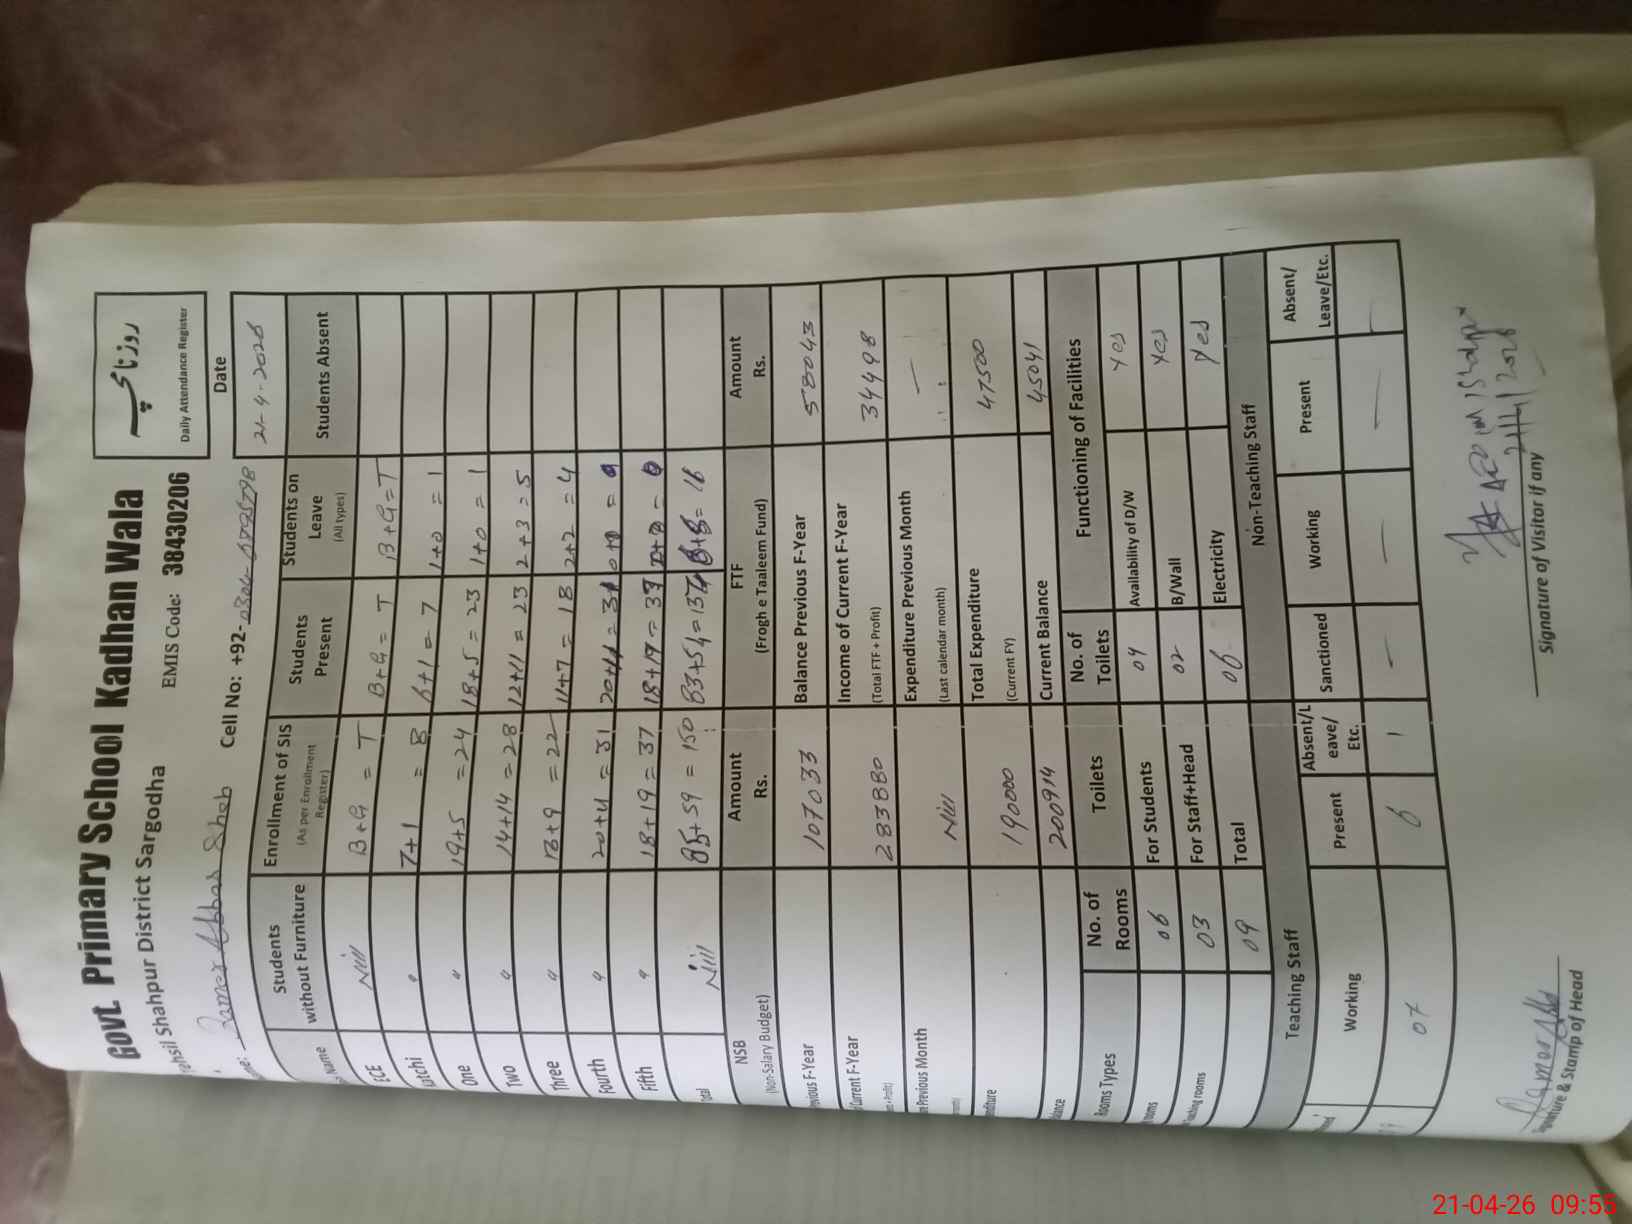 Govt Primary School Kadhan Wala
روزنامچہ
Daily Attendance Register
Shahpur District Sargodha
EMIS Code: 38430206
Cell No: +92-
Date
21-4-2026
Name
Students without Furniture
Enrollment of SIS (As per Enrollment Register)
Students Present
Students on Leave (All types)
Students Absent
ECE Nill B+G = T B+G = T B+G=T
Katchi " 7+1 = 8 6+1 = 7 1+0 = 1
One " 19+5 = 24 18+5 = 23 1+0 = 1
Two " 14+14 = 28 12+11 = 23 2+3 = 5
Three " 13+9 = 22 11+7 = 18 2+2 = 4
Fourth " = 31
Fifth " 18+19 = 37
Nill = 150 = 16
NSB (Non-Salary Budget) Amount Rs. FTF (Frogh e Taaleem Fund) Amount Rs.
Previous F-Year 107033 Balance Previous F-Year 58043
Current F-Year 283880 Income of Current F-Year (Total FTF + Profit) 34498
Previous Month Nill Expenditure Previous Month (Last calendar month) —
190000 Total Expenditure (Current FY) 47500
200914 Current Balance 45041
Rooms Types No. of Rooms Toilets No. of Toilets Functioning of Facilities
06 For Students 04 Availability of D/W Yes
03 For Staff+Head 02 B/Wall Yes
09 Total 06 Electricity Yes
Teaching Staff Non-Teaching Staff
Working Present Absent/Leave/Etc. Sanctioned Working Present Absent/Leave/Etc.
07 6 1 — — — —
Signature & Stamp of Head
Signature of Visitor if any
21-04-26 09:55